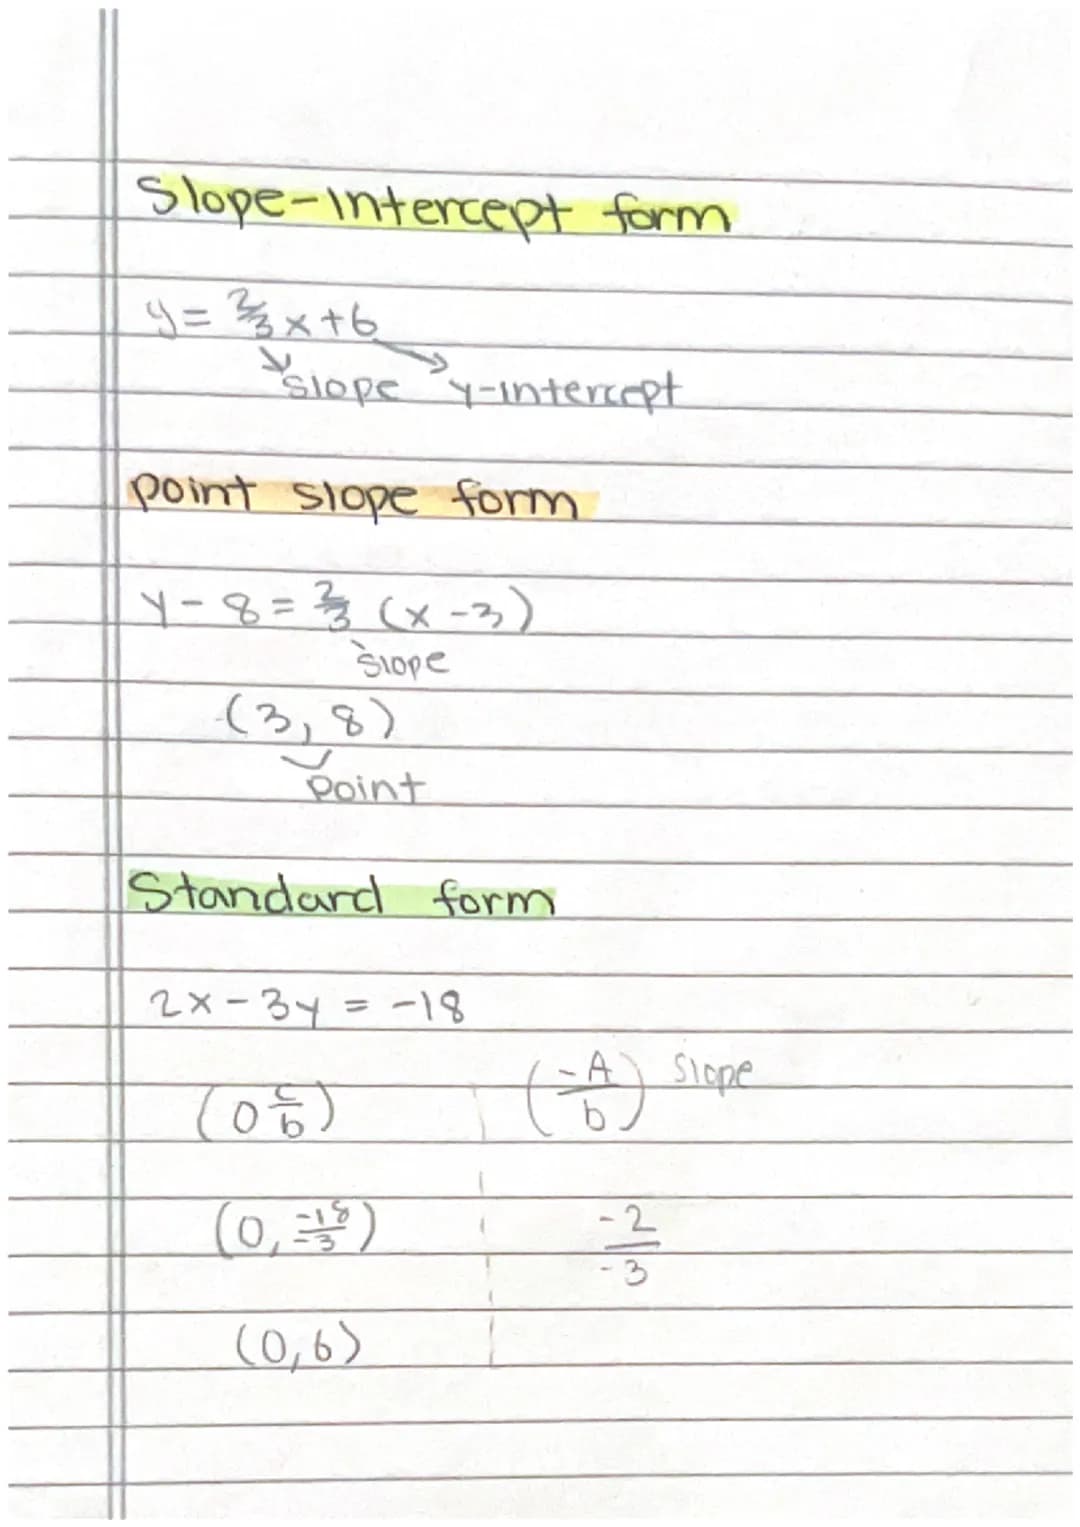 Slope-Intercept form
y = 2/3 x + 6
slope y-intercept
point slope form
y - 8 = 2/3 (x - 3)
slope
(3, 8)
point
Standard form
2x - 3y = -18
(0 c/b) (-A/b) slope
(0, -18/-3) -2/-3
(0,6)